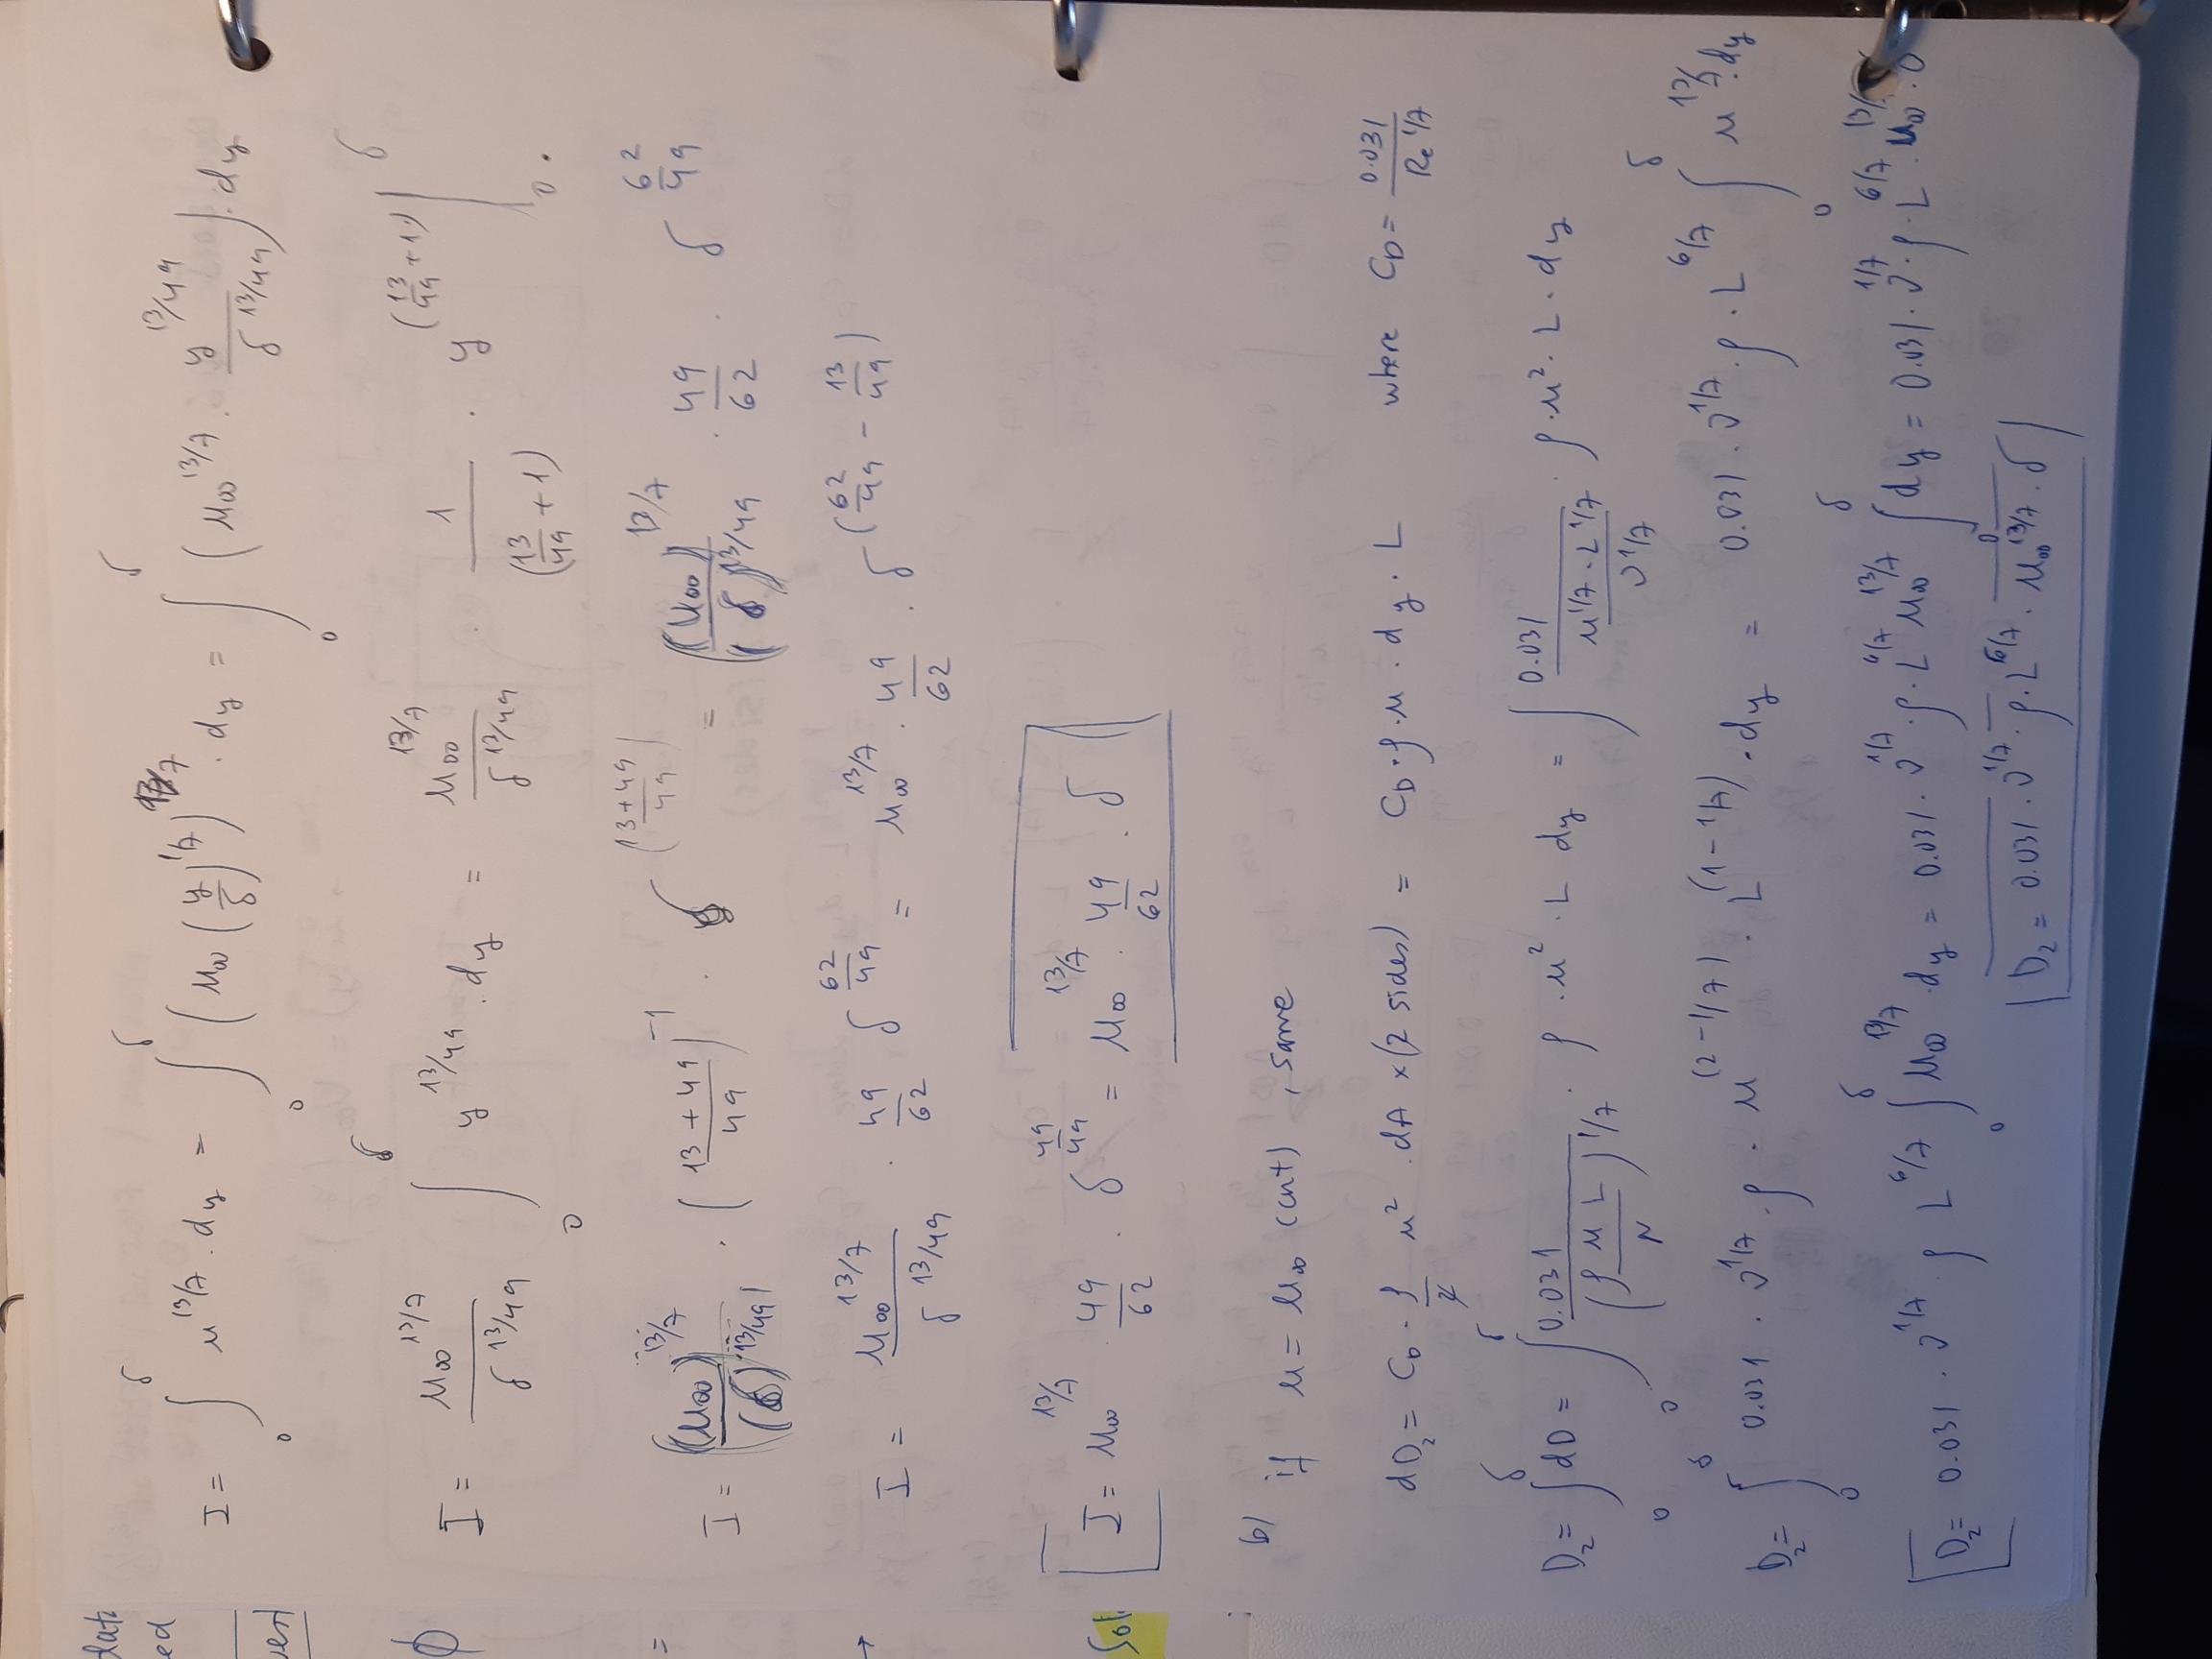 data
ed
I = ∫₀^δ u^{13/7} · dy = ∫₀^δ (u∞ (y/δ)^{1/7})^{13/7} · dy = ∫₀^δ (u∞^{13/7} · y^{13/49} / δ^{13/49}) · dy
ϕ
I = u∞^{13/7} / δ^{13/49} ∫₀^δ y^{13/49} · dy = u∞^{13/7} / δ^{13/49} · 1 / (13/49 + 1) · y^{(13/49 + 1)} |₀^δ
=
I = (u∞)^{13/7} / (δ)^{13/49} · ((13 + 49)/49)^{-1} · δ^{((13+49)/49)} = (u∞)^{13/7} / (δ)^{13/49} · 49/62 · δ^{62/49}
→
I = u∞^{13/7} / δ^{13/49} · 49/62 δ^{62/49} = u∞^{13/7} · 49/62 · δ^{(62/49 - 13/49)}
I = u∞^{13/7} · 49/62 · δ^{49/49} = u∞^{13/7} · 49/62 · δ
b) if u = u∞ (cnt) , same
dD₂ = C_D · ρ/2 u² dA × (2 sides) = C_D · ρ · u · dy · L where C_D = 0.031 / Re^{1/7}
D₂ = ∫₀^δ dD = ∫₀^δ 0.031 / (ρ u L / μ)^{1/7} · ρ · u² · L dy = ∫ 0.031 / (u^{1/7} · L^{1/7} / ν^{1/7}) · ρ · u² · L · dy
D₂ = ∫₀^δ 0.031 · ν^{1/7} · ρ · u^{(2-1/7)} · L^{(1-1/7)} · dy = 0.031 · ν^{1/7} · ρ · L^{6/7} ∫₀^δ u^{13/7} · dy
D₂ = 0.031 · ν^{1/7} · ρ L^{6/7} ∫₀^δ u∞^{13/7} · dy = 0.031 · ν^{1/7} · ρ · L^{6/7} u∞^{13/7} ∫₀^δ dy = 0.031 · ν^{1/7} · ρ · L^{6/7} · u∞^{13/} · δ
D₂ = 0.031 · ν^{1/7} · ρ · L^{6/7} · u∞^{13/7} · δ